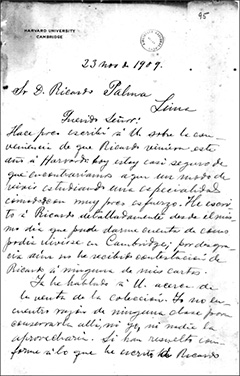 95
HARVARD UNIVERSITY
CAMBRIDGE
23 nov de 1909.
Sr D. Ricardo Palma
Lima
Querido Señor:
Hace poco escribí a U sobre la con
veniencia de que Ricardo viniera este
año a Harvard. Hoy estoy casi seguro de
que encontraríamos aquí un modo de
vivir estudiando una especialidad
comoda con muy poco esfuerzo. He escri
to á Ricardo detalladamente desde el mis
mo dia que pude darme cuenta de como
podia vivirse en Cambridge; por desgra
cia aun no he recibido contestación de
Ricardo á ninguna de mis cartas.
Ya he hablado á U. acerca de
la venta de la colección. Yo no en
cuentro razón de ninguna clase para
conservarla alli, ni yo, ni nadie la
aprovechará. Si han resuelto con
forme a lo que he escrito á Ricardo